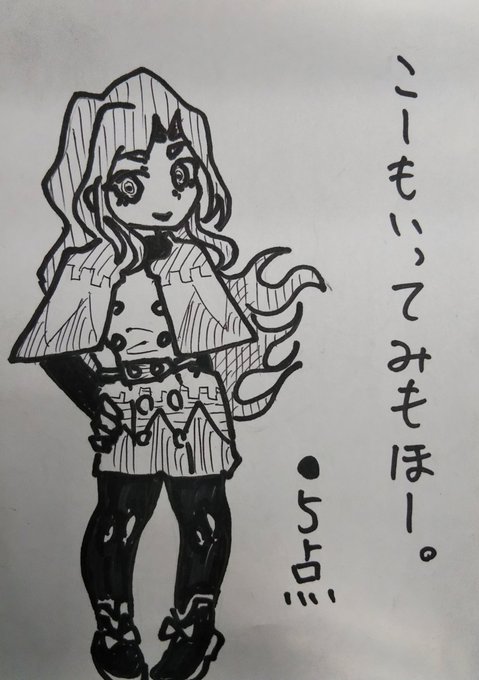 こーもいってみもほー。
●5点